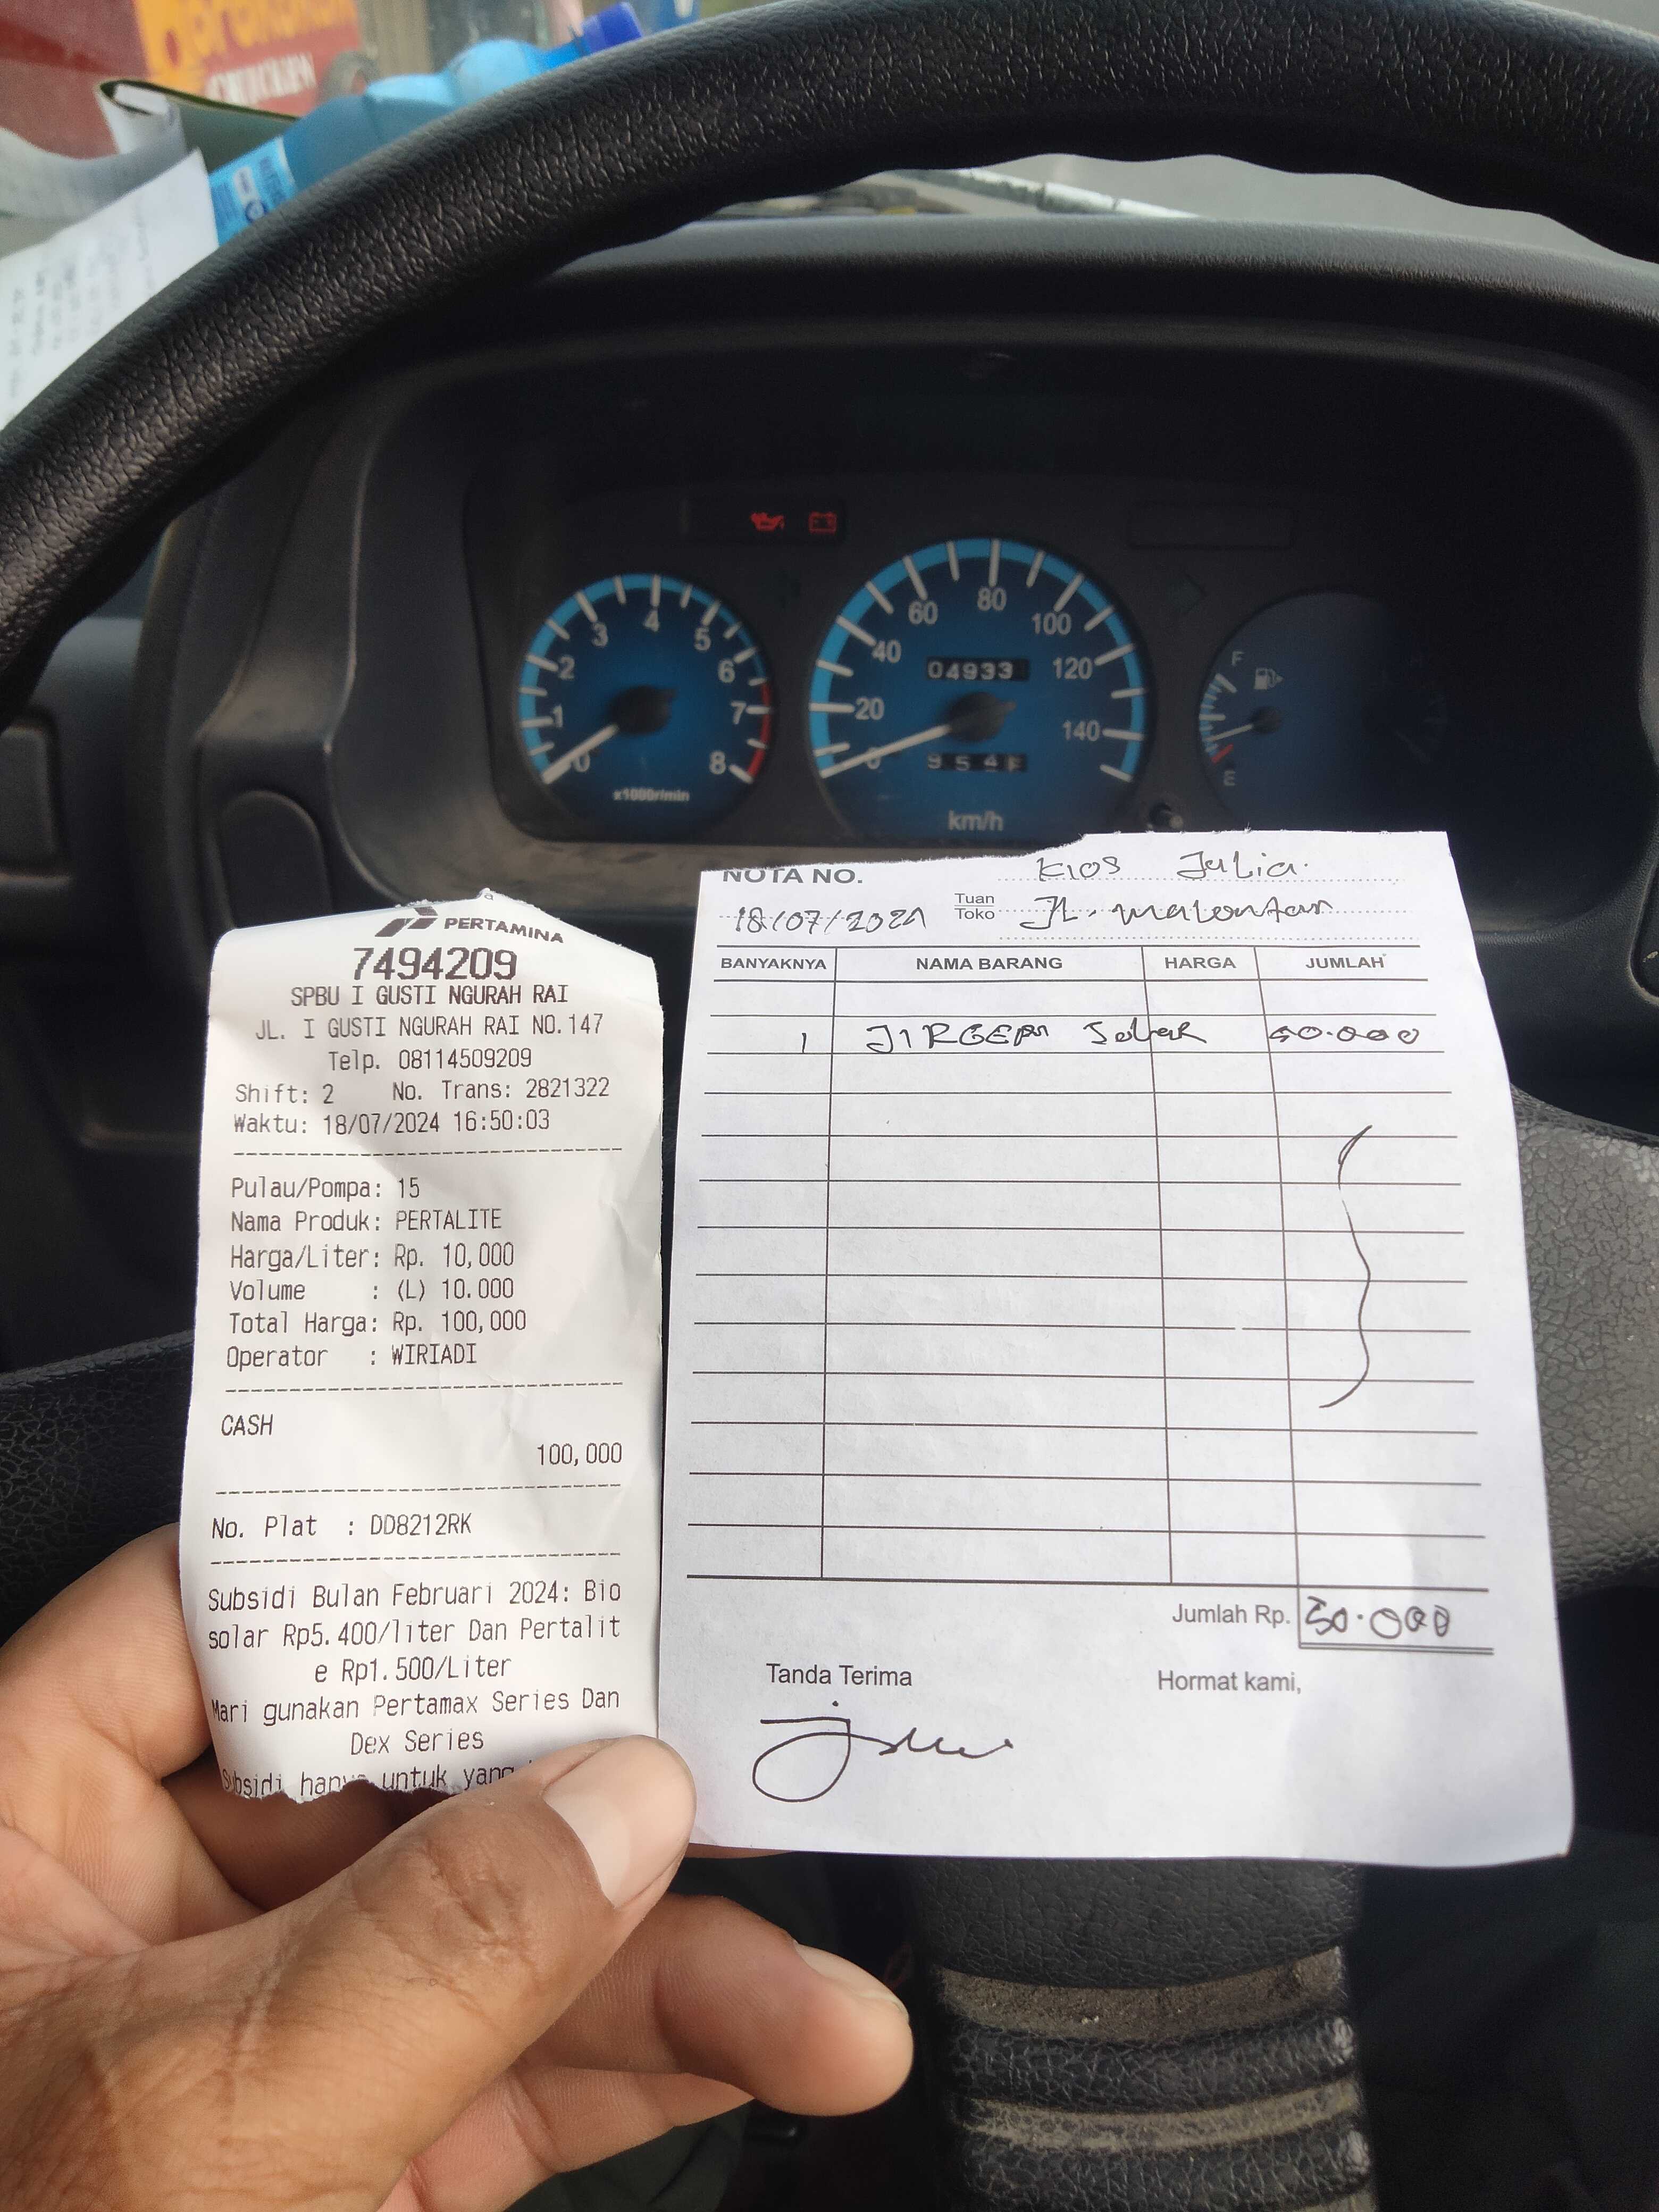 F
E
1
2
3
4
5
6
7
8
0
x1000r/min
20
40
60
80
100
120
140
04933
km/h
PERTAMINA
7494209
SPBU I GUSTI NGURAH RAI
JL. I GUSTI NGURAH RAI NO.147
Telp. 08114509209
Shift: 2 No. Trans: 2821322
Waktu: 18/07/2024 16:50:03
Pulau/Pompa: 15
Nama Produk: PERTALITE
Harga/Liter: Rp. 10,000
Volume : (L) 10.000
Total Harga: Rp. 100,000
Operator : WIRIADI
CASH
100,000
No. Plat : DD8212RK
Subsidi Bulan Februari 2024: Bio
solar Rp5.400/liter Dan Pertalit
e Rp1.500/Liter
Mari gunakan Pertamax Series Dan
Dex Series
Subsidi hanya untuk yang
NOTA NO. Kios Julia.
18/07/2024 Tuan
Toko JL.
BANYAKNYA NAMA BARANG HARGA JUMLAH
1 JIRGEN 50.000
Jumlah Rp. 50.000
Tanda Terima Hormat kami,